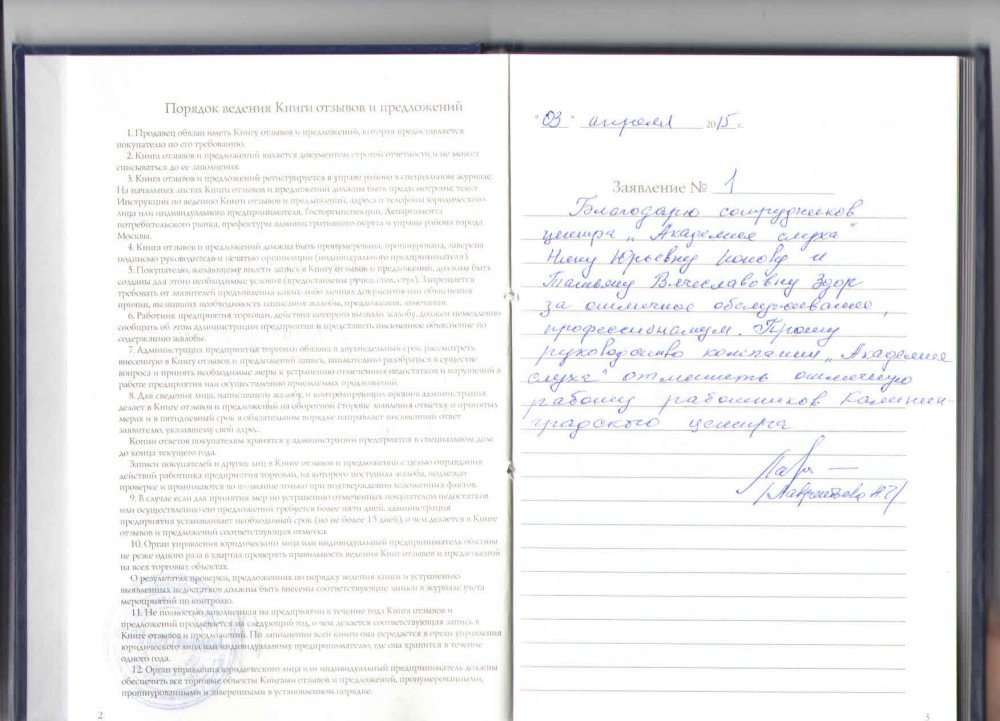 Порядок ведения Книги отзывов и предложений
1. Продавец обязан иметь Книгу отзывов и предложений, которая предоставляется
покупателю по его требованию.
2. Книга отзывов и предложений является документом строгой отчетности и не может
списываться до ее заполнения.
3. Книга отзывов и предложений регистрируется в управе района в специальном журнале.
На начальных листах Книги отзывов и предложений должны быть предусмотрены: текст
Инструкции по ведению Книги отзывов и предложений, адреса и телефоны юридического
лица или индивидуального предпринимателя, Госторгинспекции, Департамента
потребительского рынка, префектуры административного округа и управы района города
Москвы.
4. Книга отзывов и предложений должна быть пронумерована, прошнурована, заверена
подписью руководителя и печатью организации (индивидуального предпринимателя).
5. Покупателю, желающему внести запись в Книгу отзывов и предложений, должны быть
созданы для этого необходимые условия (предоставлены ручка, стол, стул). Запрещается
требовать от заявителей предъявления каких-либо личных документов или объяснения
причин, вызвавших необходимость написания жалобы, предложения, замечания.
6. Работник предприятия торговли, действия которого вызвали жалобу, должен немедленно
сообщить об этом администрации предприятия и представить письменное объяснение по
содержанию жалобы.
7. Администрация предприятия торговли обязана в двухнедельный срок рассмотреть
внесенную в Книгу отзывов и предложений запись, внимательно разобраться в существе
вопроса и принять необходимые меры к устранению отмеченных недостатков и нарушений в
работе предприятия или осуществлению приемлемых предложений.
8. Для сведения лица, написавшего жалобу, и контролирующего органа администрация
делает в Книге отзывов и предложений на оборотной стороне заявления отметку о принятых
мерах и в пятидневный срок в обязательном порядке направляет письменный ответ
заявителю, указавшему свой адрес.
Копии ответов покупателям хранятся у администрации предприятия в специальном деле
до конца текущего года.
Записи покупателей и других лиц в Книге отзывов и предложений с целью оправдания
действий работника предприятия торговли, на которого поступила жалоба, подлежат
проверке и принимаются во внимание только при подтверждении изложенных фактов.
9. В случае если для принятия мер по устранению отмеченных покупателем недостатков
или осуществлению его предложений требуется более пяти дней, администрация
предприятия устанавливает необходимый срок (но не более 15 дней), о чем делается в Книге
отзывов и предложений соответствующая отметка.
10. Орган управления юридического лица или индивидуальный предприниматель обязаны
не реже одного раза в квартал проверять правильность ведения Книг отзывов и предложений
на всех торговых объектах.
О результатах проверки, предложениях по порядку ведения книги и устранению
выявленных недостатков должны быть внесены соответствующие записи в журнале учета
мероприятий по контролю.
11. Не полностью заполненная на предприятии в течение года Книга отзывов и
предложений продлевается на следующий год, о чем делается соответствующая запись в
Книге отзывов и предложений. По заполнении всей книги она передается в орган управления
юридического лица или индивидуальному предпринимателю, где она хранится в течение
одного года.
12. Орган управления юридического лица или индивидуальный предприниматель должны
обеспечить все торговые объекты Книгами отзывов и предложений, пронумерованными,
прошнурованными и заверенными в установленном порядке.
2
"03" апреля 2015 г.
Заявление № 1
Благодарю сотрудников
центра „Академия слуха"
Нину Юрьевну Ионову и
Татьяну Вячеславовну Здор
за отличное обслуживание,
профессионализм. Прошу
руководство компании „Академия
слуха" отметить отличную
работу работников Калинин-
градского центра
/Лаврентьева
3